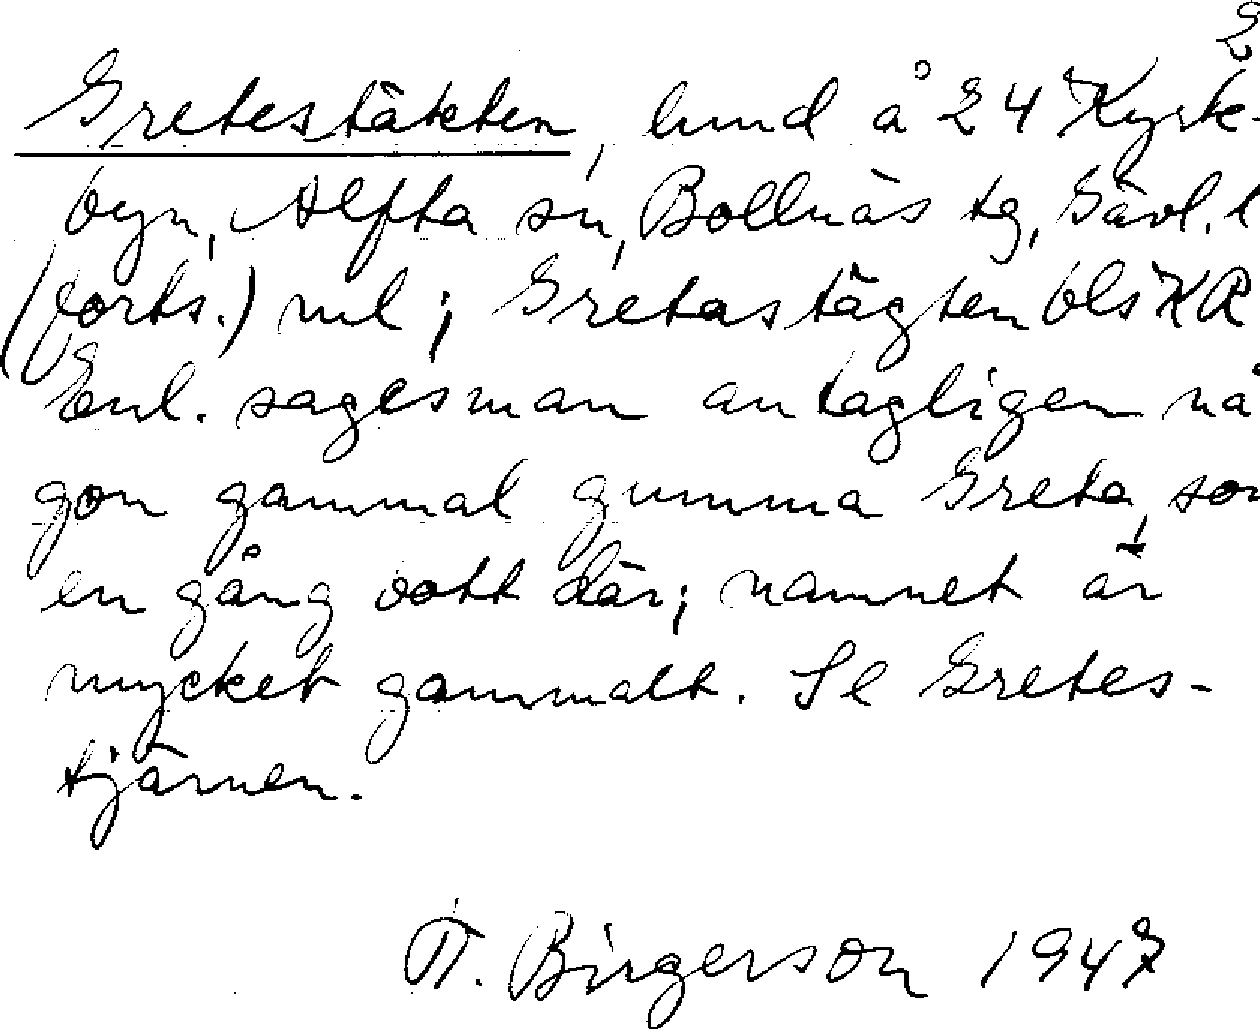 2
Gretestäkten, lund å 24 Kyrk-
byn, Alfta sn, Bollnäs tg, Gävl. l
(forts.) ml; Gretastägten bls KR
Enl. sagesman antagligen nå
gon gammal gumma Greta, som
en gång bott där; namnet är
mycket gammalt. Se Gretes-
tjärnen.
F. Birgerson 1947